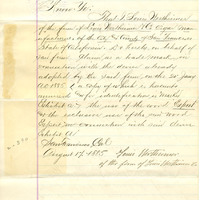 Know Ye.
That I, Louis Wertheimer
of the firm of Louis Wertheimer & Co Cigar Man-
ufacturers, of the City & County of San Francisco
State of California, do hereby, on behalf of
said firm, claim as a trade mark, in
connection with the device already
adopted by the said firm, on the 20" January
A.D. 1885, (a copy of which is hereunto
annexed for identification, & marked
Exhibit A) the use of the word
to the exclusive use of the said word
in connection with said device
Exhibit A)
San Francisco Cal
August 17, 1885. Louis Wertheimer
of the firm of Louis Wertheimer & Co